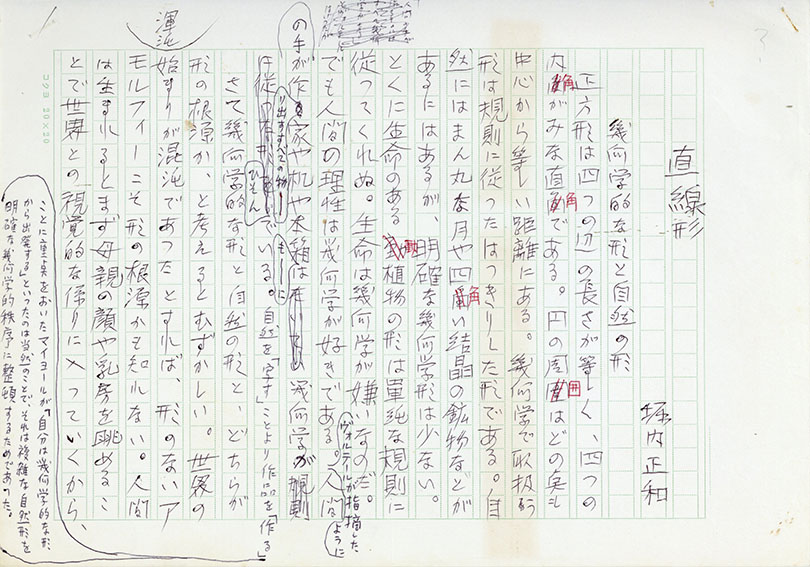 直線形
堀内正和
幾何学的な形と自然の形
正方形は四つの辺の長さが等しく、四つの
内角がみな直角である。円の周囲はどの点も
中心から等しい距離にある。幾何学で取扱う
形は規則に従ったはっきりした形である。自
然にはまん丸な月や四角い結晶の鉱物などが
あるにはあるが、明確な幾何学形は少ない。
とくに生命のある動植物の形は単純な規則に
従ってくれぬ。生命は幾何学が嫌いなのだ。
でも人間の理性は幾何学が好きである。ヴォルテールが指摘したように人間
の手が作り出すすべての物
家や机や本箱は
幾何学が規則
もとに
ひそんでいる。自然を「写す」ことより作品を「作る」
ことに重点をおいたマイヨールが「自分は幾何学的な形
から出発する」といったのは当然のことで、それは複雑な自然形を
明確な幾何学的秩序に整頓するためであった。
さて幾何学的な形と自然の形と、どちらが
形の根源か、と考えるとむずかしい。世界の
始まりが混沌であったとすれば、形のないア
渾沌
モルフィーこそ形の根源かも知れない。人間
は生まれるとまず母親の顔や乳房を眺めるこ
とで世界との視覚的な係りに入っていくから、
コクヨ 20×20